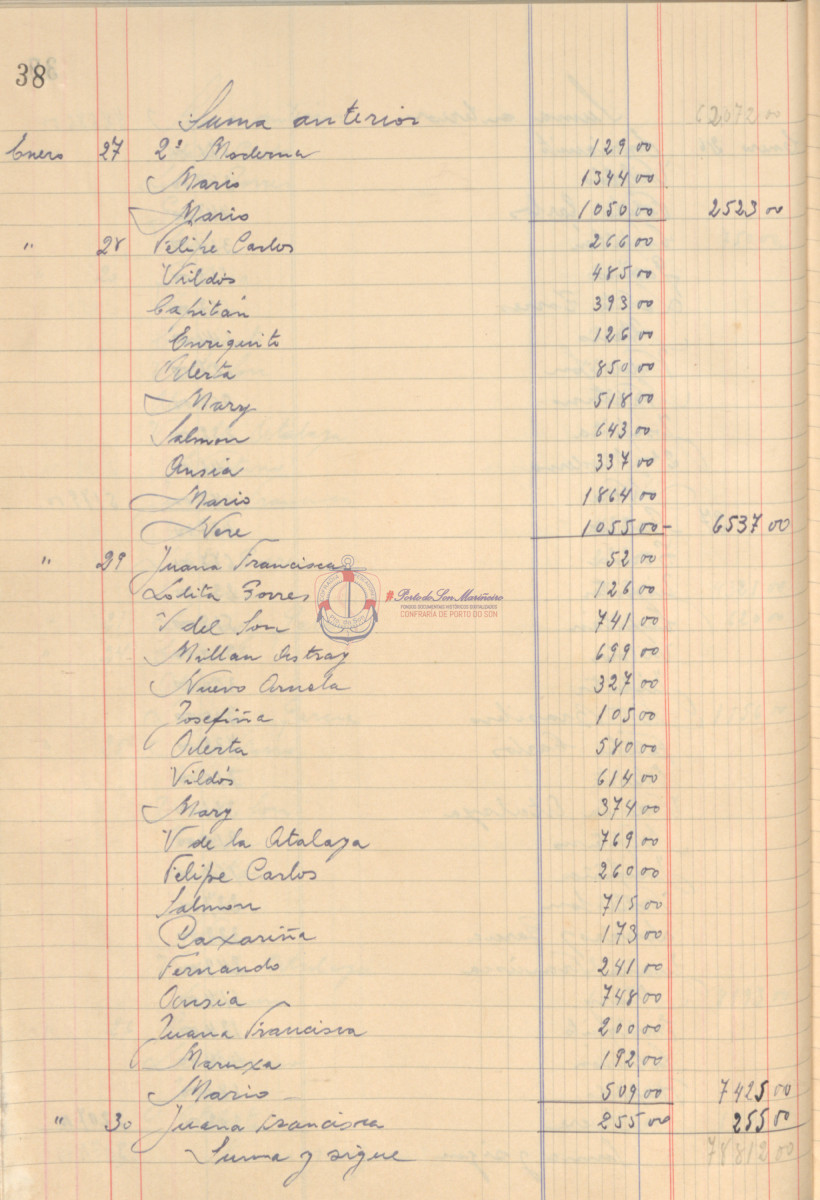 38
Suma anterior 62072 00
Enero 27 2ª Moderna 129 00
Mario 1344 00
Mario 1050 00 2523 00
" 28 Felipe Carlos 266 00
Vildós 485 00
Capitán 393 00
Enriquito 126 00
Oderta 850 00
Mary 518 00
Salmon 643 00
Ansia 337 00
Mario 1864 00
Nere 1055 00 - 6537 00
" 29 Juana Francisca 52 00
Lolita Torres 126 00
V del Son 741 00
Millan Astray 699 00
Nuevo Arnela 327 00
Josefiña 105 00
Oderta 580 00
Vildós 614 00
Mary 374 00
V de la Atalaya 769 00
Felipe Carlos 260 00
Salmon 715 00
Paxariña 173 00
Fernando 241 00
Ansia 748 00
Juana Francisca 200 00
Maruxa 192 00
Mario 509 00 7425 00
" 30 Juana Francisca 255 00 255 00
Suma y sigue 78812 00
Porto do Son Mariñeiro
FONDOS DOCUMENTAIS HISTÓRICOS DIXITALIZADOS
CONFRARÍA DE PORTO DO SON